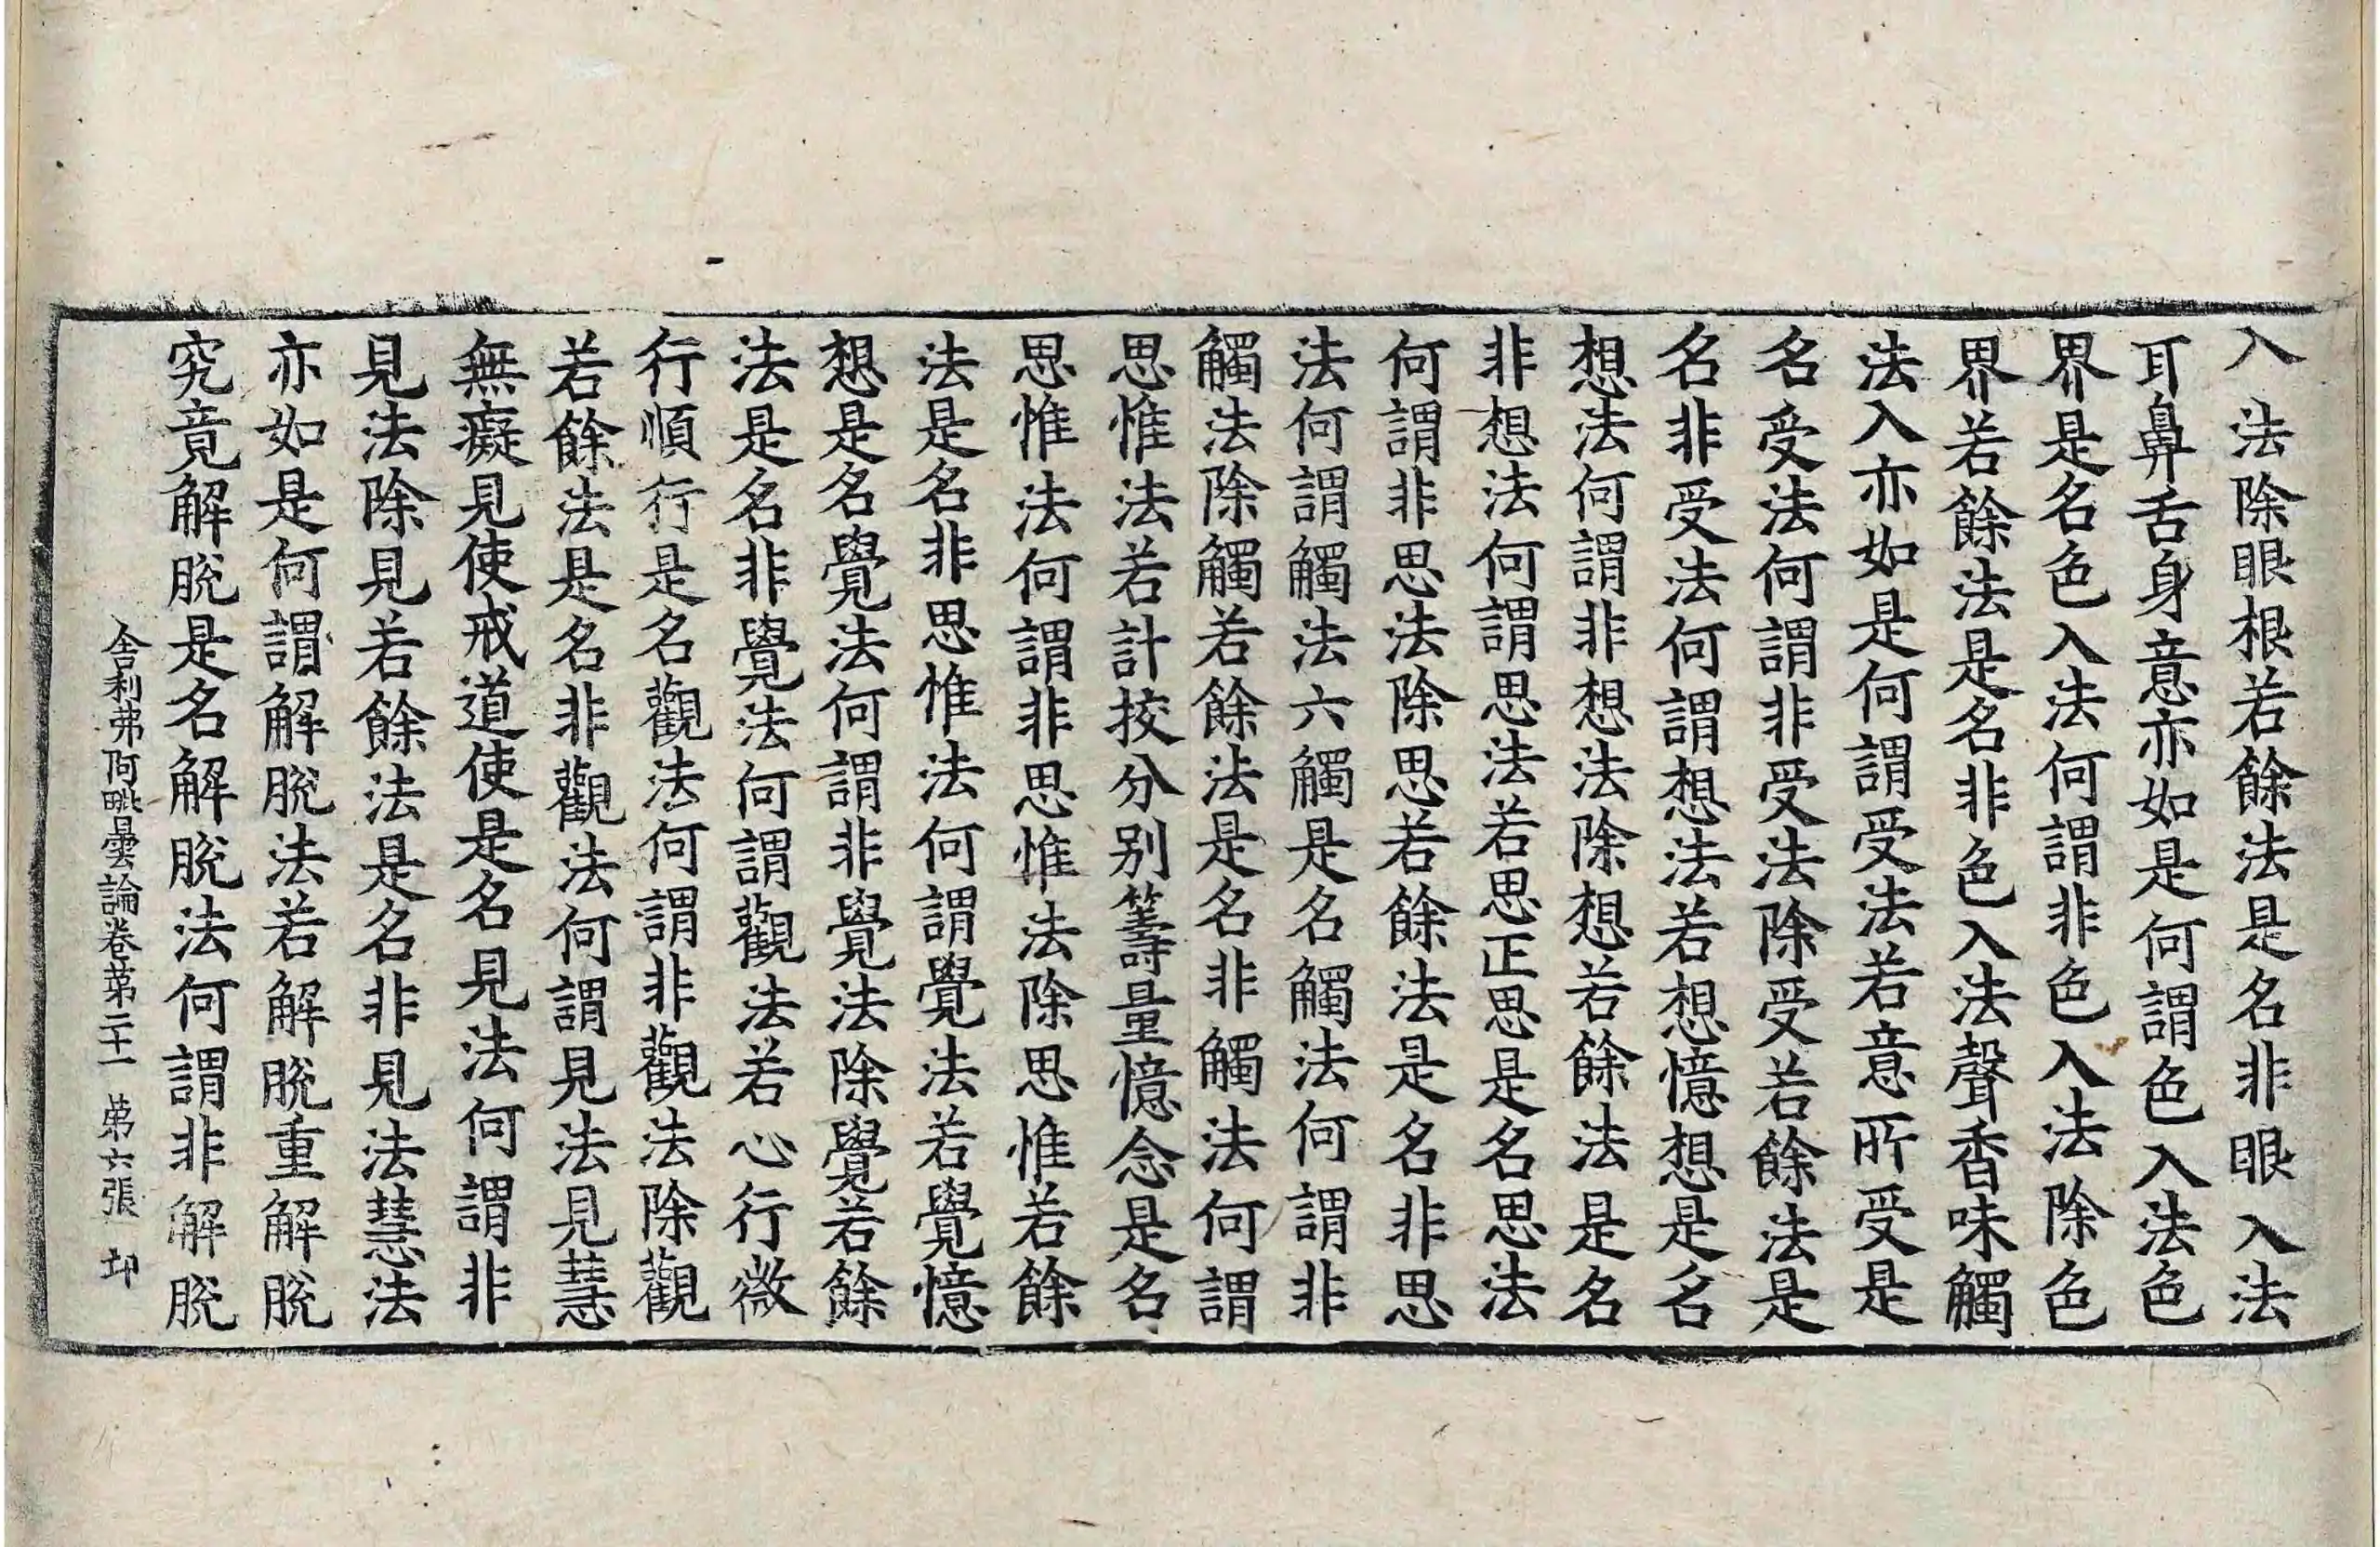 入法除眼根若餘法是名非眼入法
耳鼻舌身意亦如是何謂色入法色
界是名色入法何謂非色入法除色
界若餘法是名非色入法聲香味觸
法入亦如是何謂受法若意所受是
名受法何謂非受法除受若餘法是
名非受法何謂想法若想憶想是名
想法何謂非想法除想若餘法是名
非想法何謂思法若思正思是名思法
何謂非思法除思若餘法是名非思
法何謂觸法六觸是名觸法何謂非
觸法除觸若餘法是名非觸法何謂
思惟法若計挍分別籌量憶念是名
思惟法何謂非思惟法除思惟若餘
法是名非思惟法何謂覺法若覺憶
想是名覺法何謂非覺法除覺若餘
法是名非覺法何謂觀法若心行微
行順行是名觀法何謂非觀法除觀
若餘法是名非觀法何謂見法見慧
無癡見使戒道使是名見法何謂非
見法除見若餘法是名非見法慧法
亦如是何謂解脫法若解脫重解脫
究竟解脫是名解脫法何謂非解脫
舍利弗阿毗曇論卷第二十一 第六張